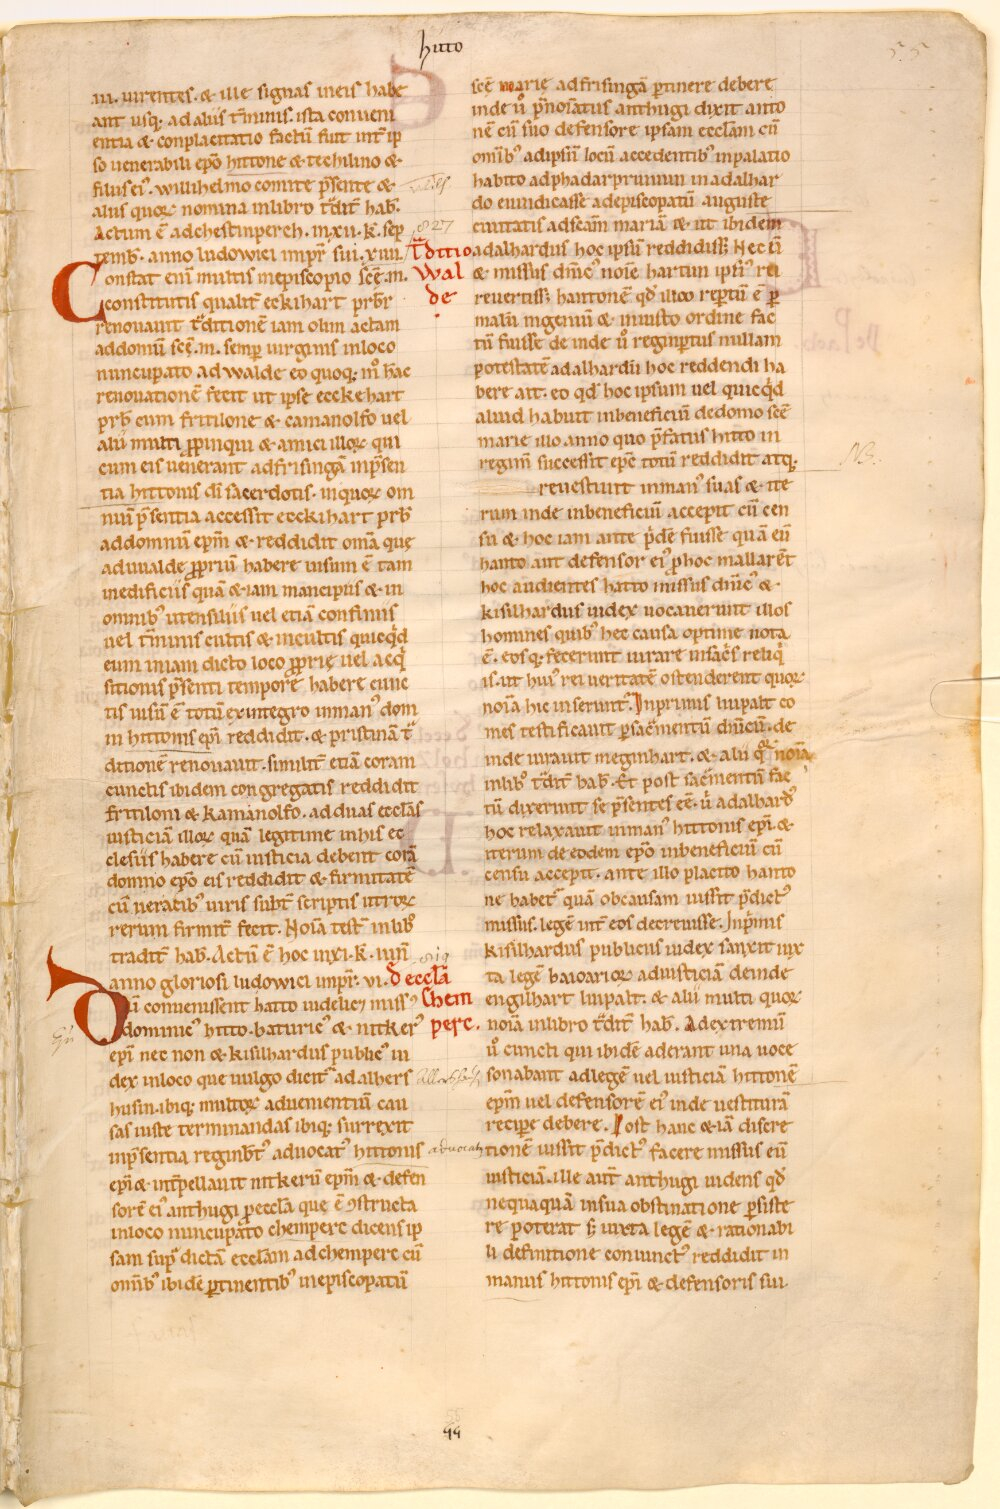 hitto
55
iii. uirentes. & ille signas ineis habe
ant usq; ad aliis t̄minis. ista conueni
entia & conplacitatio factū fuit int̄ ip
so uenerabili ep̄o hittone & techilino &
filiis ei᾿. willihelmo comite p̄sente &
aliis quoꝝ nomina inlibro t̄dit̄ hab̄.
Actum ē adchestinperch. inxii. k̄. sep
temb̄. anno ludowici imp̄r sui. xiiii.
827
T̄ditio
Wal
de
Constat eni multis inepiscopio sc̄e. m.
constitutis qualit̄ eckihart pr̄br
renouauit t̄ditionē iam olim actam
addomū sc̄e. m. semp uirginis inloco
nuncupato ad walde eo quoq; m̊ hac
renouationē fecit ut ipse eckehart
pr̄b cum fritilone & camanolfo uel
alii multi ꝓpinqui & amici illoꝝ qui
cum eis uenerant adfrisingā inp̄sen
tia hittonis di᷑ sacerdotis. inquoꝝ om
niū p̄sentia accessit eckihart pr̄b
addomnū ep̄m & reddidit om̄a que
aduualde ꝓpriū habere uisum ē tam
inedificiis quā & iam mancipiis & in
omnib᾿ utensiliis uel etiā confiniis
uel t̄minis cultis & incultis quicq̇d
eum iniam dicto loco ꝓprie uel acq̇
sitionis p̄senti tempore habere cunc
tis uisū ē totū exintegro inman᾿ dom
ni hittonis ep̄i reddidit. & pristinā t̄
ditionē renouauit. similit̄ etiā coram
cunctis ibidem congregatis reddidit
fritiloni & kamanolfo. adduas ecclās
iusticiā illoꝝ quā legitime inhis ec
clesiis habere cū iusticia debent corā
domno ep̄o eis reddidit & firmitatē
cū ueracib᾿ uiris subt̄ scriptis utroꝝ
rerum firmit̄ fecit. Noīa test̄ inlib᾿
tradit̄ hab̄. Actū ē hoc inxi. k̄. iun̄
anno gloriosi ludowici imp̄r. vi.
819
d ecclā
Chem
perc.
Dū conuenissent hatto uidelic& miss᾿
dominic᾿ hitto. baturic᾿ & nitker᾿
ep̄i nec non & kisilhardus public᾿ iu
dex inloco que uulgo dicit᾿ ad albers
husin. ibiq; multoꝝ aduenientiū cau
sas iuste terminandas ibiq; surrexit
inp̄sentia reginb̄t᾿ aduocat᾿ hittonis
advocatꝰ
ep̄i & int̄pellauit nitkerū ep̄m & defen
sorē ei᾿ anthugi p ecclā que ē ꝯstructa
inloco nuncupato chemperc dicens ip
sam sup᾿ dictā ecclam ad chemperc cū
omīb᾿ ibidē ꝑtinentib᾿ inepiscopatū
sc̄e marie adfrisingā ꝑtinere debere
inde u̇ p̄noīatus anthugi dixit anto
nē cū suo defensore ipsam ecclām cū
omīb᾿ adipsū locū accedentib᾿ inpalatio
habito adphadarprunnin inadalhar
do euindicasse adepiscopatū auguste
ciuitatis adscam mariā & ut ibidem
adalhardus hoc ipsū reddidiss&. Nec ū
& missus dn̄ic᾿ noīe hartun ipsi᾿ rei
reuertiss& hantonē qd̄ illoco reptū ē p
malū ingeniū & iniusto ordine fac
tū fuisse de inde u̇ reginptus nullam
potestatē adalhardū hoc reddendi ha
bere ait. eo qd̄ hoc ipsum uel quicq̇d
aliud habuit inbeneficiū dedomo sc̄e
marie illo anno quo p̄fatus hitto in
regimī successit ep̄c totū reddidit atq;
NB.
reuestiuit inman᾿ suas & ite
rum inde inbeneficiū accepit cū cen
su & hoc iam ante p̄dē fuisse quā eū
hanto aut defensor ei᾿ p hoc mallar&
hoc audientes hatto missus dn̄ic᾿ &
kisilhardus iudex uocauerunt illos
homines quib᾿ hec causa optime nota
ē. eos q; fecerunt iurare insacīs reliq̇
is. ut hui᾿ rei ueritatē ostenderent quoꝝ
noīa hic inserunt᾿. Inprimis liupalt co
mes testificauit p sac̄mentū dn̄icū. de
inde iurauit meginhart. & alii q̇ꝝ noīa
inlib᾿ t̄dit̄ hab̄. Et post sac̄mentū fac
tū dixerunt se p̄sentes eē. u̇ adalhard᾿
hoc relaxauit inman᾿ hittonis ep̄i. &
iterum de eodem ep̄o inbeneficiū cū
censu accepit. ante illo placito hanto
ne habet᾿ quā obcausam iussit p̄dict᾿
missus. legē int̄ eos decreuisse. Inp̄mis
kisilhardus publicus iudex sanxit iux
ta legē baioarioꝝ adiusticiā deinde
engilhart liupalt. & alii multi quoꝝ
noīa inlibro t̄dit̄ hab̄. Adextremū
u̇ cuncti qui ibidē aderant una uoce
sonabant adlegē uel iusticiā hittonē
ep̄m uel defensorē ei᾿ inde uestiturā
recipe debere. Post hanc & iā discre
tionē iussit p̄dict᾿ facere missus eū
iusticiā. ille aut̄ anthugi uidens qd̄
nequaquā insua obstinatione psiste
re poterat s; iuxta legē & rationabi
li definitione coniunct᾿ reddidit in
manus hittonis ep̄i & defensoris sui.
44